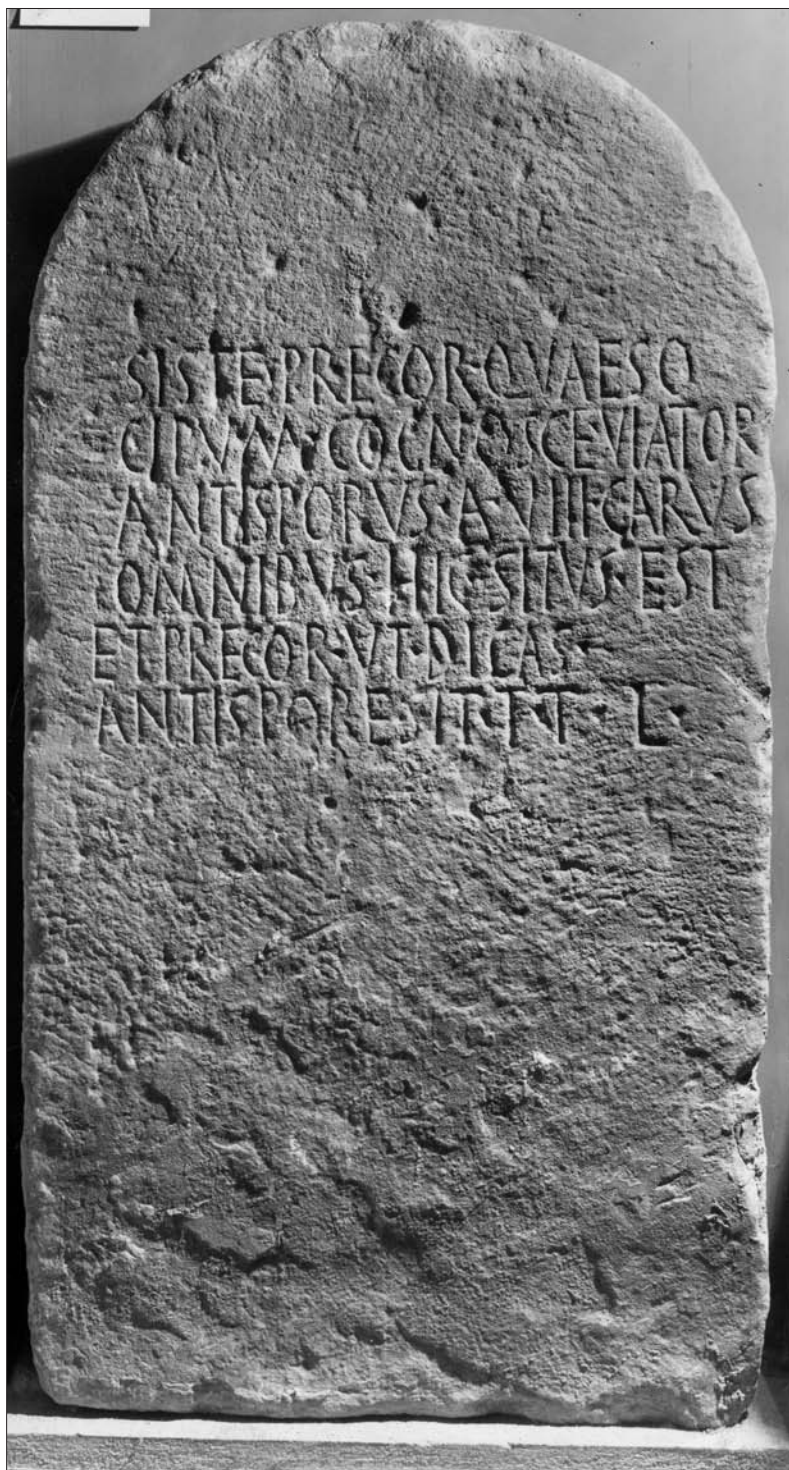 SISTE·PRECOR·QVAESO
CIPVM·COGNOSCE·VIATOR
ANTISPORVS·A·VIII·CARVS
OMNIBVS·HIC·SITVS·EST
ET PRECOR·VT·DICAS
ANTISPORE·S·T·T·L·